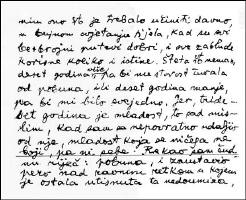 nim ono što je trebalo učiniti davno,
u bujnom cvjetanju tijela, kad su svi
bezbrojni putevi dobri, i sve zablude
korisne koliko i istine. Šteta što nemam
deset godina više, pa bi me starost čuvala
od pobuna, ili deset godina manje,
pa bi mi bilo svejedno. Jer, tride-
set godina je mladost, to sad mis-
lim, kad sam se nepovratno udaljio
od nje, mladost koja se ničega ne
boji, pa ni sebe. Rekao sam čud-
nu riječ: pobuna, i zaustavio
pero nad ravnim retkom u kojem
je ostala utisnuta ta nedoumica,